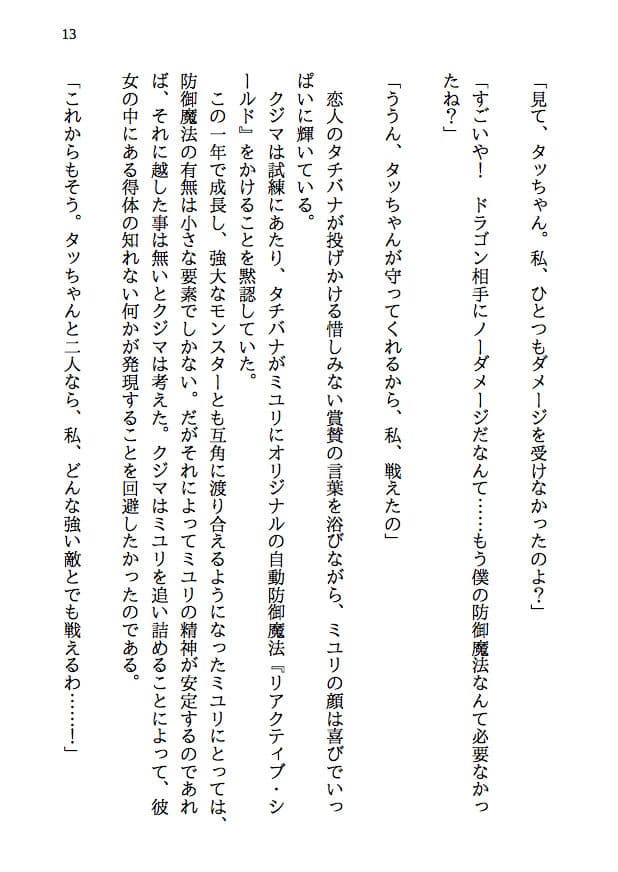 13
「見て、タッちゃん。私、ひとつもダメージを受けなかったのよ？」
「すごいや！　ドラゴン相手にノーダメージだなんて……もう僕の防御魔法なんて必要なかっ
たね？」
「ううん、タッちゃんが守ってくれるから、私、戦えたの」
　恋人のタチバナが投げかける惜しみない賞賛の言葉を浴びながら、ミユリの顔は喜びでいっ
ぱいに輝いている。
　クジマは試練にあたり、タチバナがミユリにオリジナルの自動防御魔法『リアクティブ・シ
ールド』をかけることを黙認していた。
　この一年で成長し、強大なモンスターとも互角に渡り合えるようになったミユリにとっては、
防御魔法の有無は小さな要素でしかない。だがそれによってミユリの精神が安定するのであれ
ば、それに越した事は無いとクジマは考えた。クジマはミユリを追い詰めることによって、彼
女の中にある得体の知れない何かが発現することを回避したかったのである。
「これからもそう。タッちゃんと二人なら、私、どんな強い敵とでも戦えるわ……！」